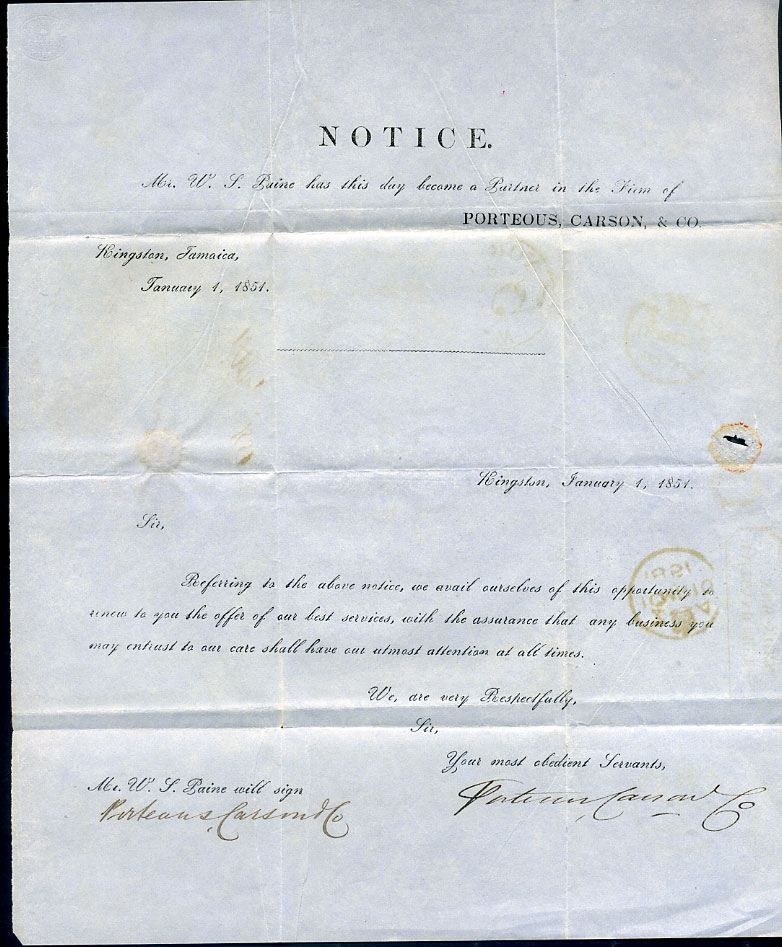 NOTICE.
Mr. W. S. Paine has this day become a Partner in the Firm of
PORTEOUS, CARSON, & CO.
Kingston, Jamaica,
January 1, 1851.
Kingston, January 1, 1851.
Sir,
Referring to the above notice, we avail ourselves of this opportunity to
renew to you the offer of our best services, with the assurance that any business you
may entrust to our care shall have our utmost attention at all times.
We, are very Respectfully,
Sir,
Your most obedient Servants,
Mr. W. S. Paine will sign
Porteous, Carson & Co
Porteous, Carson & Co